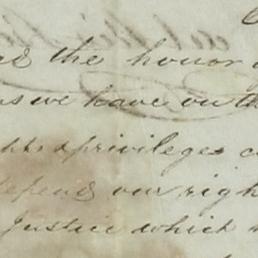 the honor
as we have on th
& privileges
depend our righ
Justice which